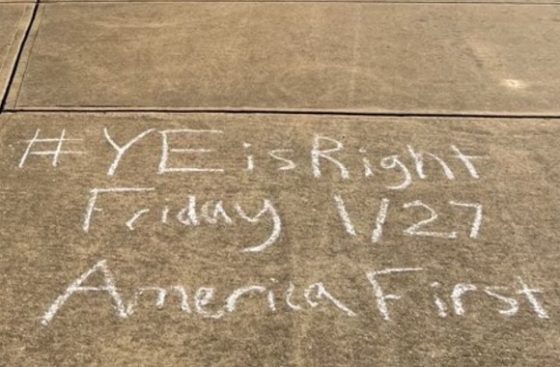 #YEisRight
Friday 1/27
America First